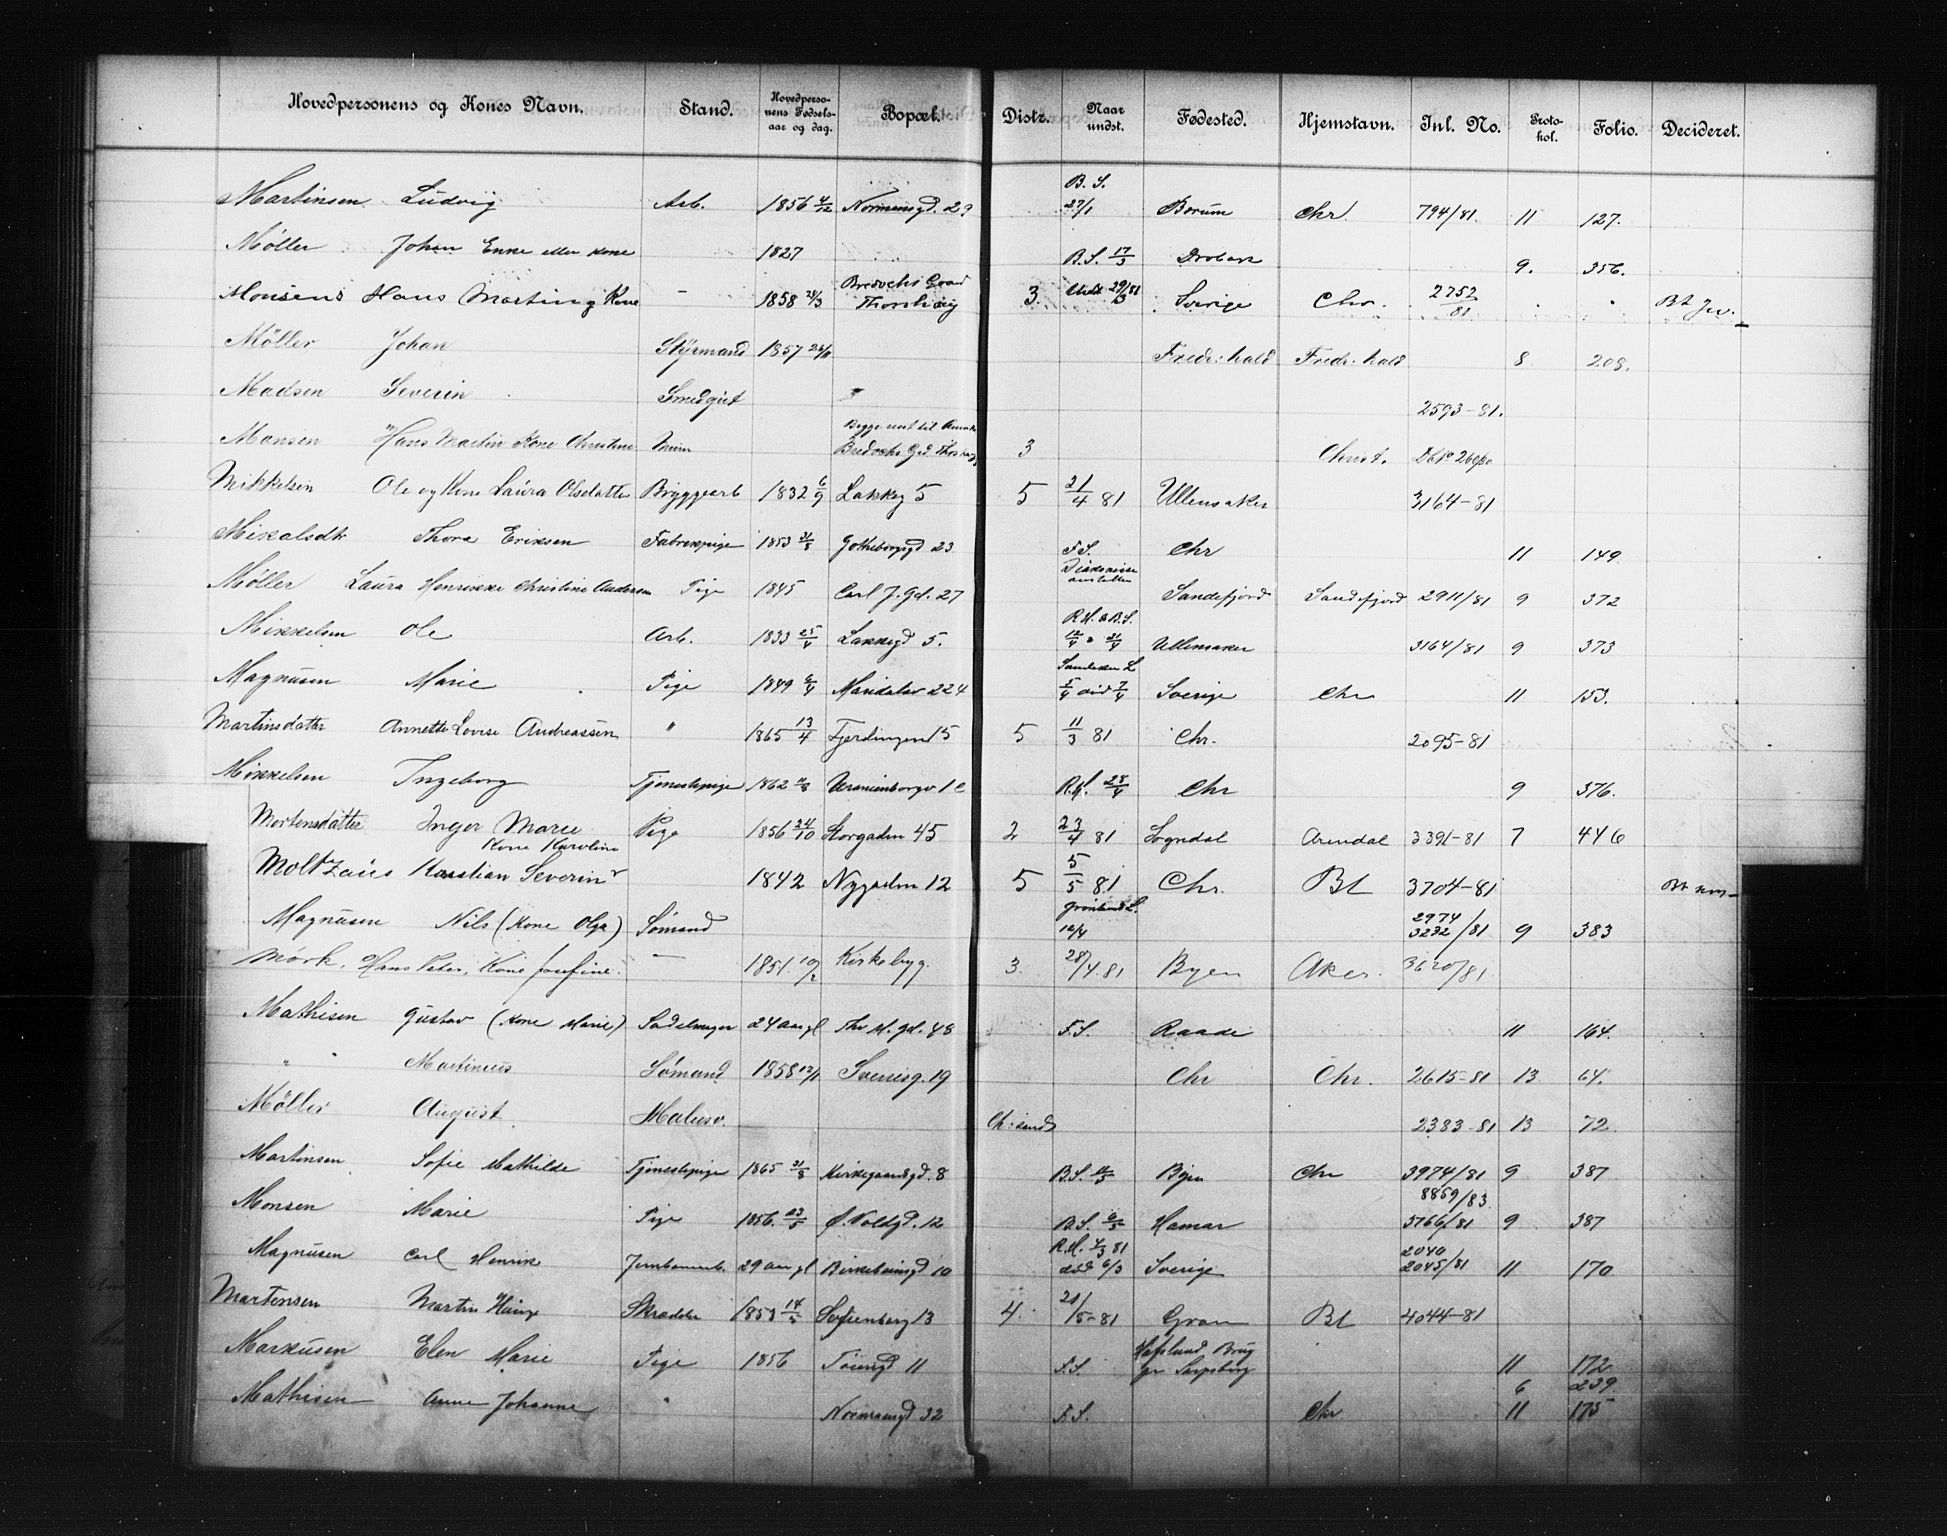 Hovedpersonens og Kones Navn. Stand. Hovedperso-nens Fødsels-aar og dag. Bopæl. Distr. Naar undst. Fødested. Hjemstavn. Inl. No. Proto-kol. Folio. Decideret.
Martinsen Ludvig Arb. 1856 4/12 Normansgd. 29 B. S. 27/1 Borum Chr. 794/81 11 127.
Møller Johan Enke eller Kone 1827 B. S. 17/3 Drobak 9. 356.
Monsens Hans Martin og Kone 1858 24/3 Bredochs Gaard Thorshaug 3 29/3 81 Sverige Chr. 2752/81 Bt
Møller Johan Styrmand 1857 Fredr: hald Fredr: hald 8 208.
Madsen Severin Smedgut " 2593-81.
Monsen Hans Martin Kone Christine Begge rest til Bredochs Gd. Thorshaug 3 Christ.
Mikkelsen Ole og Kone Laura Olsdatter Bryggearb 1832 6/9 Lakkeg 5 5 21/4 81 Ullensaker 3164-81
Mikalsdtr Thora Eriksen Fabrikpige 1853 31/8 Gotheborgsgd 23 F. S. Chr 11 149
Møller Laura Henrikke Christine Andersen Pige 1845 Carl J. Gd. 27 Diakonisse anstalten Sandefjord Sandefjord 2911/81 9 372
Mikkelsen Ole Arb. 1833 25/4 Lakkegd 5. R.H. a B.S. 12/4 a 21/4 Ullensaker 3164/81 9 373
Magnusen Marie Pige 1849 6/4 Maridalsv 224 5/4 død 7/4 Sverige Chr 11 153.
Martinsdatter Annette Lovise Andreassen " 1865 13/4 Fjerdingen 15 5 11/3 81 Chr. 2095-81
Mikkelsen Ingeborg Tjenestepige 1862 Uranienborgv 1 c R.H. 28/4 Chr 9 376.
Mortensdatter Inger Marie Pige 1856 24/10 Storgaden 45 2 23/4 81 Sogndal Arendal 3391-81 7 446
Kone Karoline
Moltzaus Kristian Severin 1842 Nygaden 12 5 5/5 81 Chr. Bt 3704-81 Bt
Magnusen Nils (Kone Olga) Sømand Grønlands L. 12/4 2974 3232/81 9 383
Mork, Hans Peter, Kone Josefine. — 1851. 10/2 Kirkebyg. 3. 28/4 81 Byen Aker. 3620/81
Mathisen Gustav (Kone Marie) Sadelmager 24 aar gl Thv M. gd. 48 F. S. Raade 11 164.
" " Martinius Sømand 1858 Sverresg. 19 Chr Chr. 2615-81 13 64.
Møller August Malersv. Ch: sand 2383-81 13 72
Martinsen Sofie Mathilde Tjenestepige 1865 31/8 Kirkegaardsgd. 8 B.S. Byen Chr 3974/81 9 387
8859/83
Monsen Marie Pige 1856. 23/5 Ø. Voldgd. 12 B.S. 6/5 Hamar 3766/81 9 387
Magnusen Carl Henrik Jernbanearb. 29 aar gl Birkebeinsgd 10 R.H. 4/3 81 død 6/3 Sverige 2040 2045/81 11 170
Martensen Martin Skrædder 1853 14/5 Sofienberg 13 4. 21/5-81 Gran Bt 4044-81
Markusen Elen Marie Pige 1856 Tøiengd 11 F. S. Hafslund Brug pr Sarpsborg 11 172
Mathisen Anne Johanne " Normansgd 32 F. S. Chr 6 239 11 175